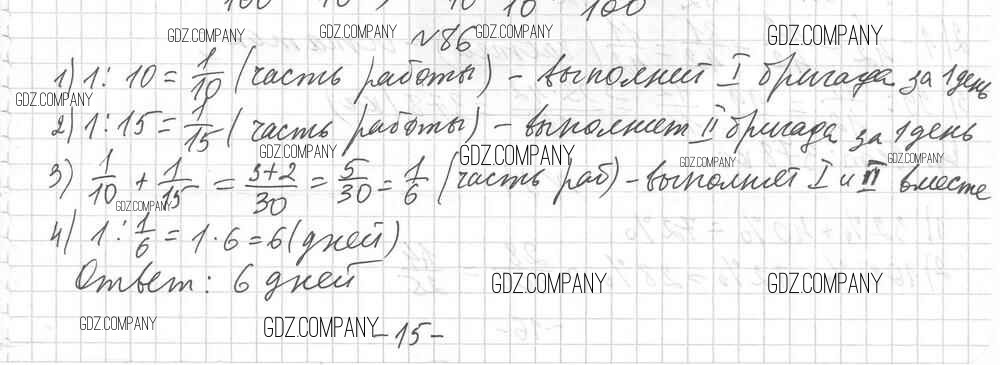 100 10 10 100
GDZ.COMPANY GDZ.COMPANY №86 GDZ.COMPANY GDZ.COMPANY
1) 1 : 10 = 1/10 (часть работы) – выполнит I бригада за 1 день
GDZ.COMPANY
2) 1 : 15 = 1/15 (часть работы) – выполнит II бригада за 1 день
GDZ.COMPANY GDZ.COMPANY GDZ.COMPANY GDZ.COMPANY
3) 1/10 + 1/15 = 3+2/30 = 5/30 = 1/6 (часть раб) – выполнит I и II вместе
GDZ.COMPANY
4) 1 : 1/6 = 1 · 6 = 6 (дней)
Ответ: 6 дней
GDZ.COMPANY GDZ.COMPANY
GDZ.COMPANY GDZ.COMPANY – 15 –